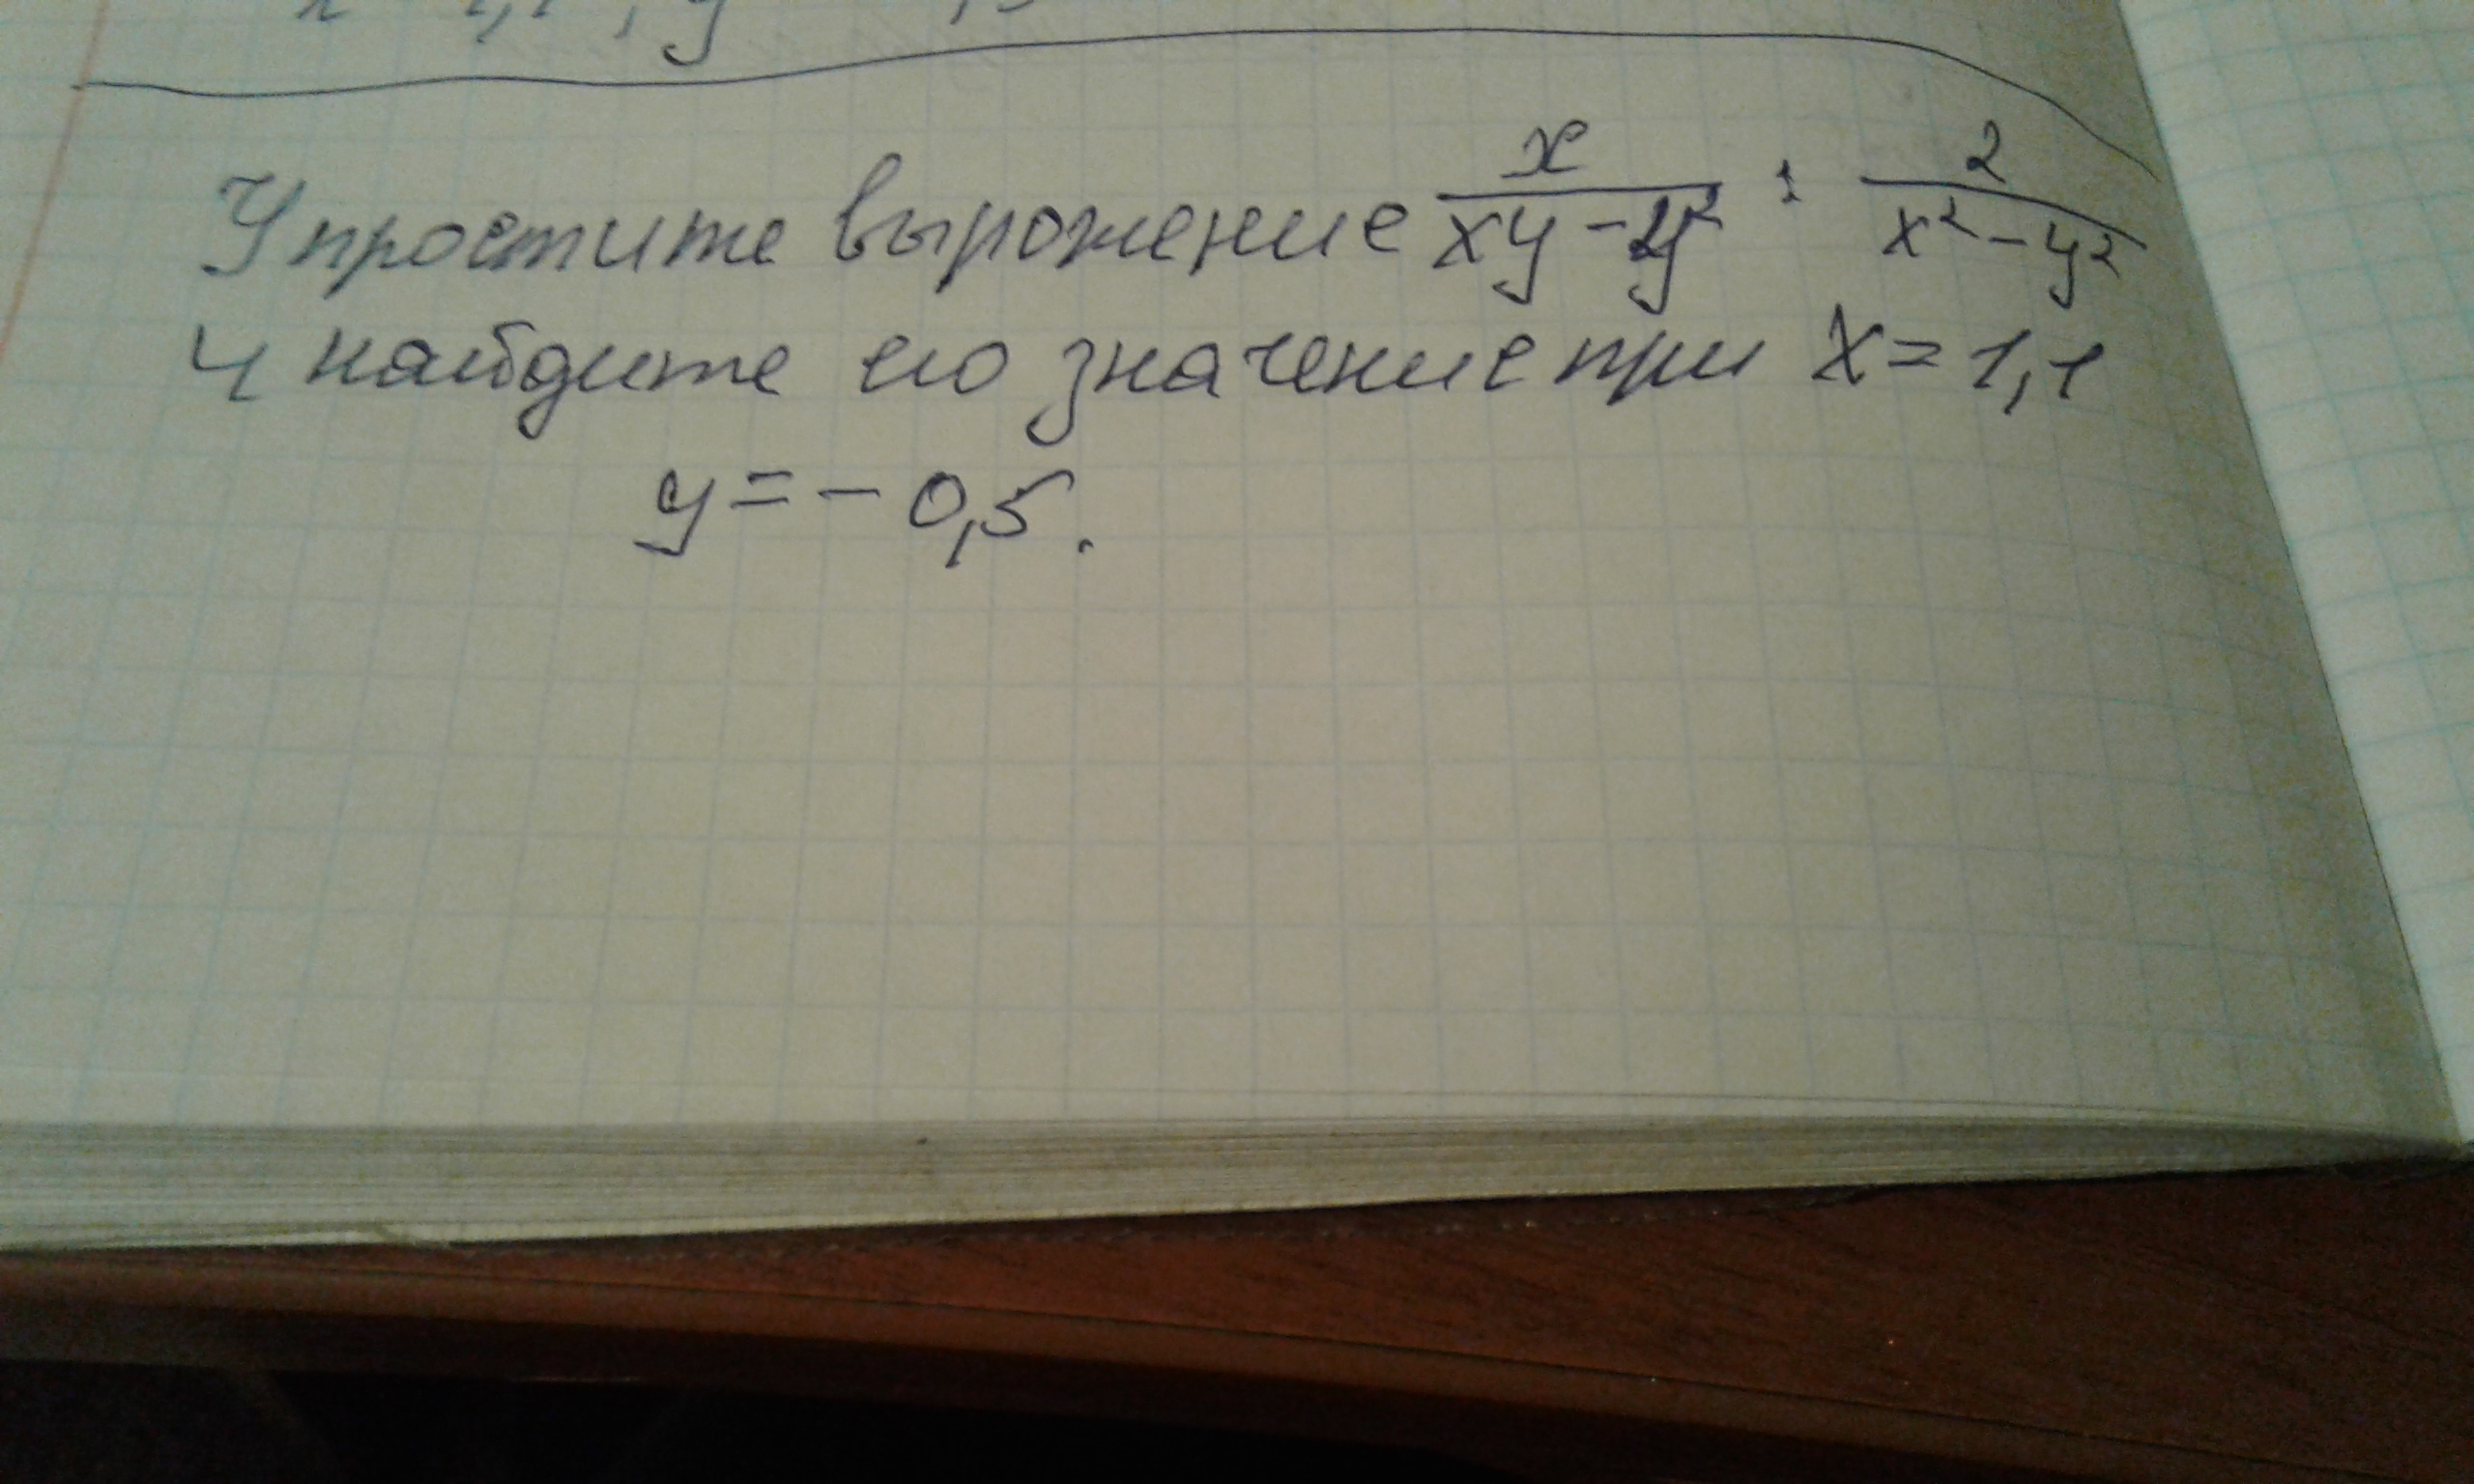 Упростите вырожение x/(xy-y²) : 2/(x²-y²)
и найдите его значение при x=1,1
y=-0,5.